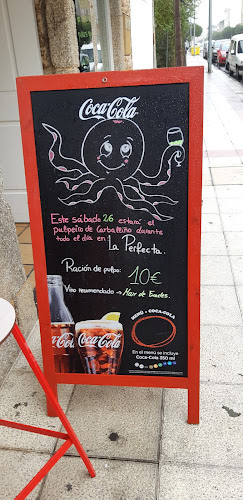 Coca-Cola
Este sábado 26 estará el
pulpeiro de Carballiño durante
todo el día en La Perfecta.
Ración de pulpo: 10€
Vino recomendado → Mar de Envetes.
MENÚ + COCA-COLA
En el menú se incluye
Coca-Cola 350 ml
Coca-Cola
Coca-Cola